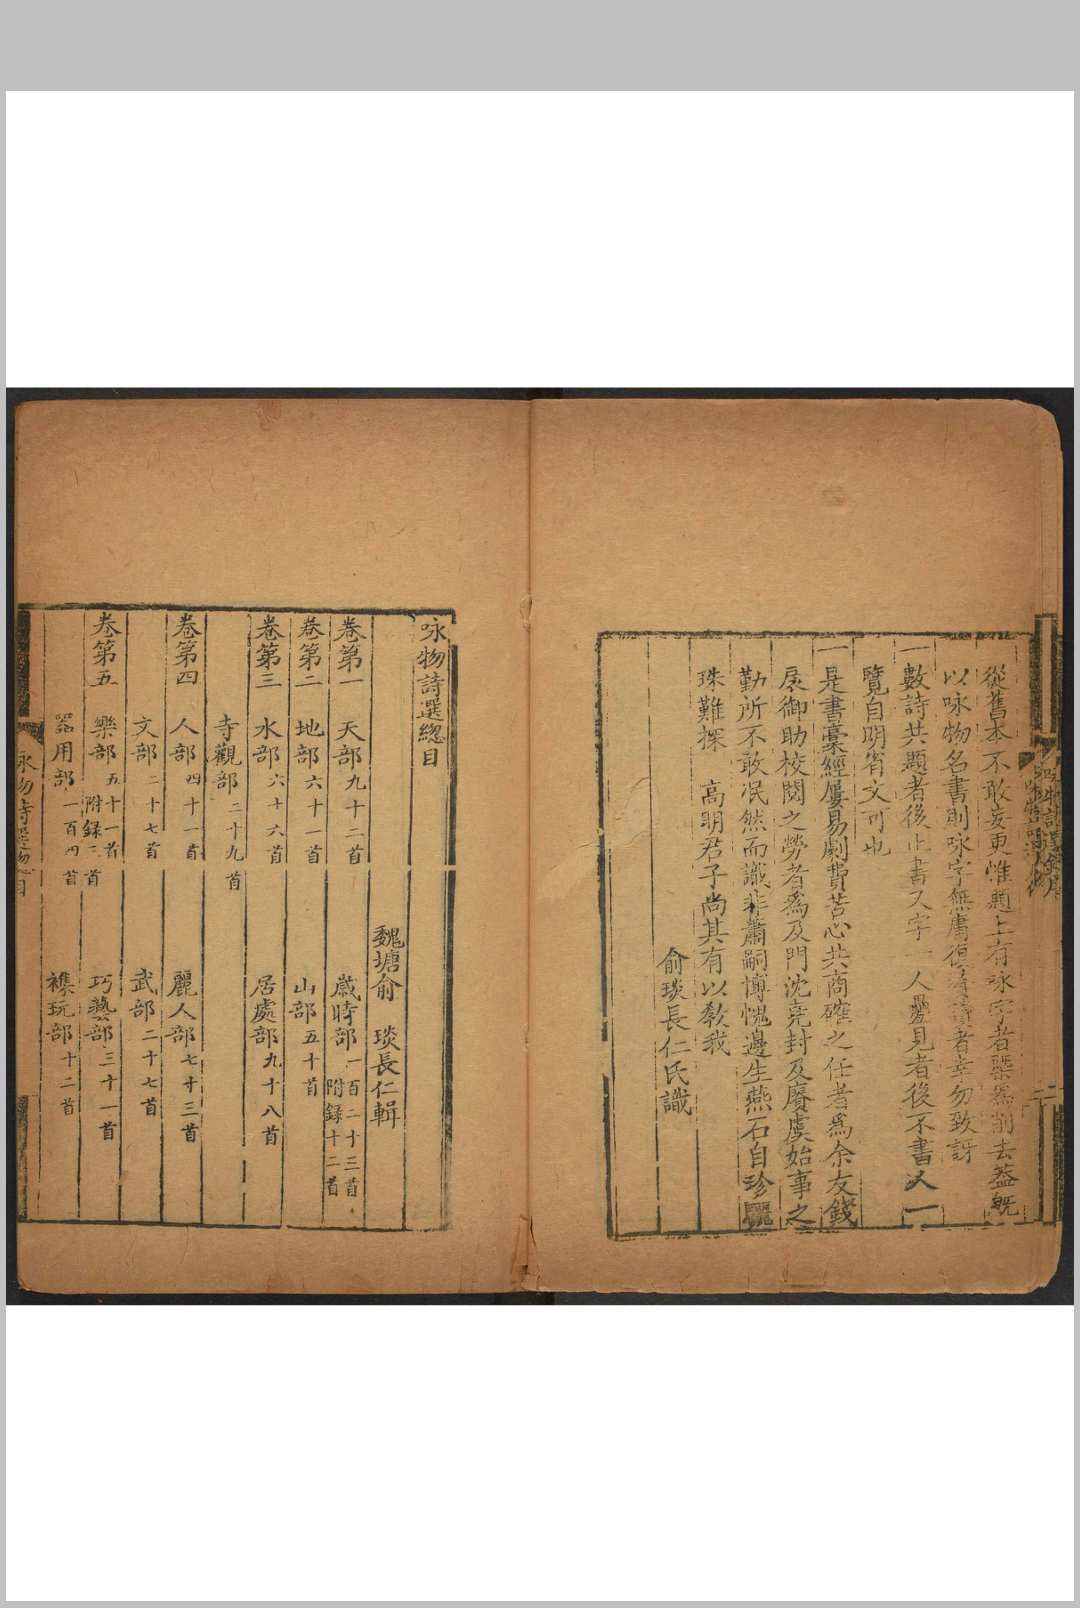 從舊本不敢妄更惟題上有咏字者槩爲削去蓋旣
以咏物名書則咏字無庸復著讀者幸勿致訝
一數詩共題者後止書又字一人疊見者後不書人一
覽自明省文可也
一是書藁經屢易劇費苦心共商確之任者爲余友錢
扆御助校閱之勞者爲及門沈堯封及賡虞始事之
勤所不敢泯然而識非蕭嗣博愧邊生燕石自珍驪
珠難探 高明君子尚其有以敎我
俞琰長仁氏識
咏物詩選總目
魏塘俞 琰長仁輯
卷第一 天部九十二首 歲時部一百二十三首 附錄十二首
卷第二 地部六十一首 山部五十首
卷第三 水部六十六首 居處部九十八首
寺觀部二十九首
卷第四 人部四十一首 麗人部七十三首
文部二十七首 武部二十七首
卷第五 樂部五十一首 附錄二首 巧藝部三十一首
器用部一百四首 襍玩部十二首
咏物詩選總目